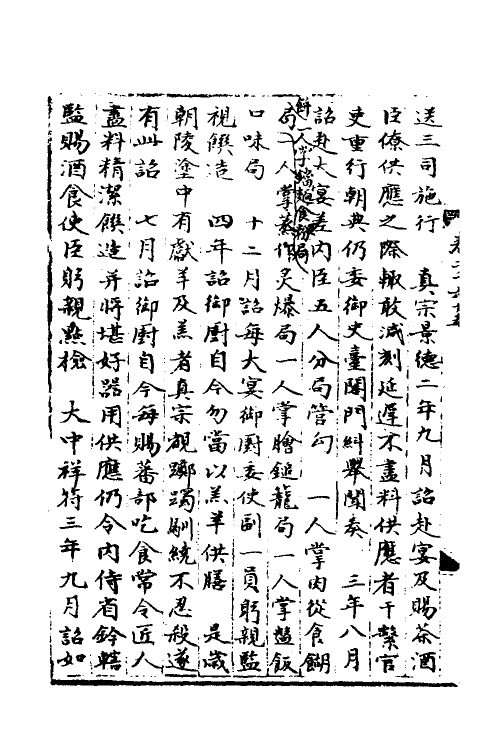 送三司施行　真宗景德二年九月詔赴宴及賜茶酒
臣僚供應之際輙敢減刻延遲不盡料供應者干繫官
吏重行朝典仍委御史臺閤門糾舉聞奏　三年八月
詔赴大宴差內臣五人分局管勾　一人掌肉從食餬
餅一人掌
麵食粉局
局一人掌蒸作炙爆局一人掌膾鎚龍局一人掌盤飯
口味局　十二月詔每大宴御廚委使副一員躬親監
視饌造　四年詔御廚自今勿當以羔羊供膳　是歲
朝陵塗中有獻羊及羔者真宗覩躑躅馴繞不忍殺遂
有此詔　七月詔御廚自今每賜蕃部吃食常令匠人
盡料精潔饌造并將堪好器用供應仍令內侍省鈐轄
監賜酒食使臣躬親點檢　大中祥符三年九月詔如